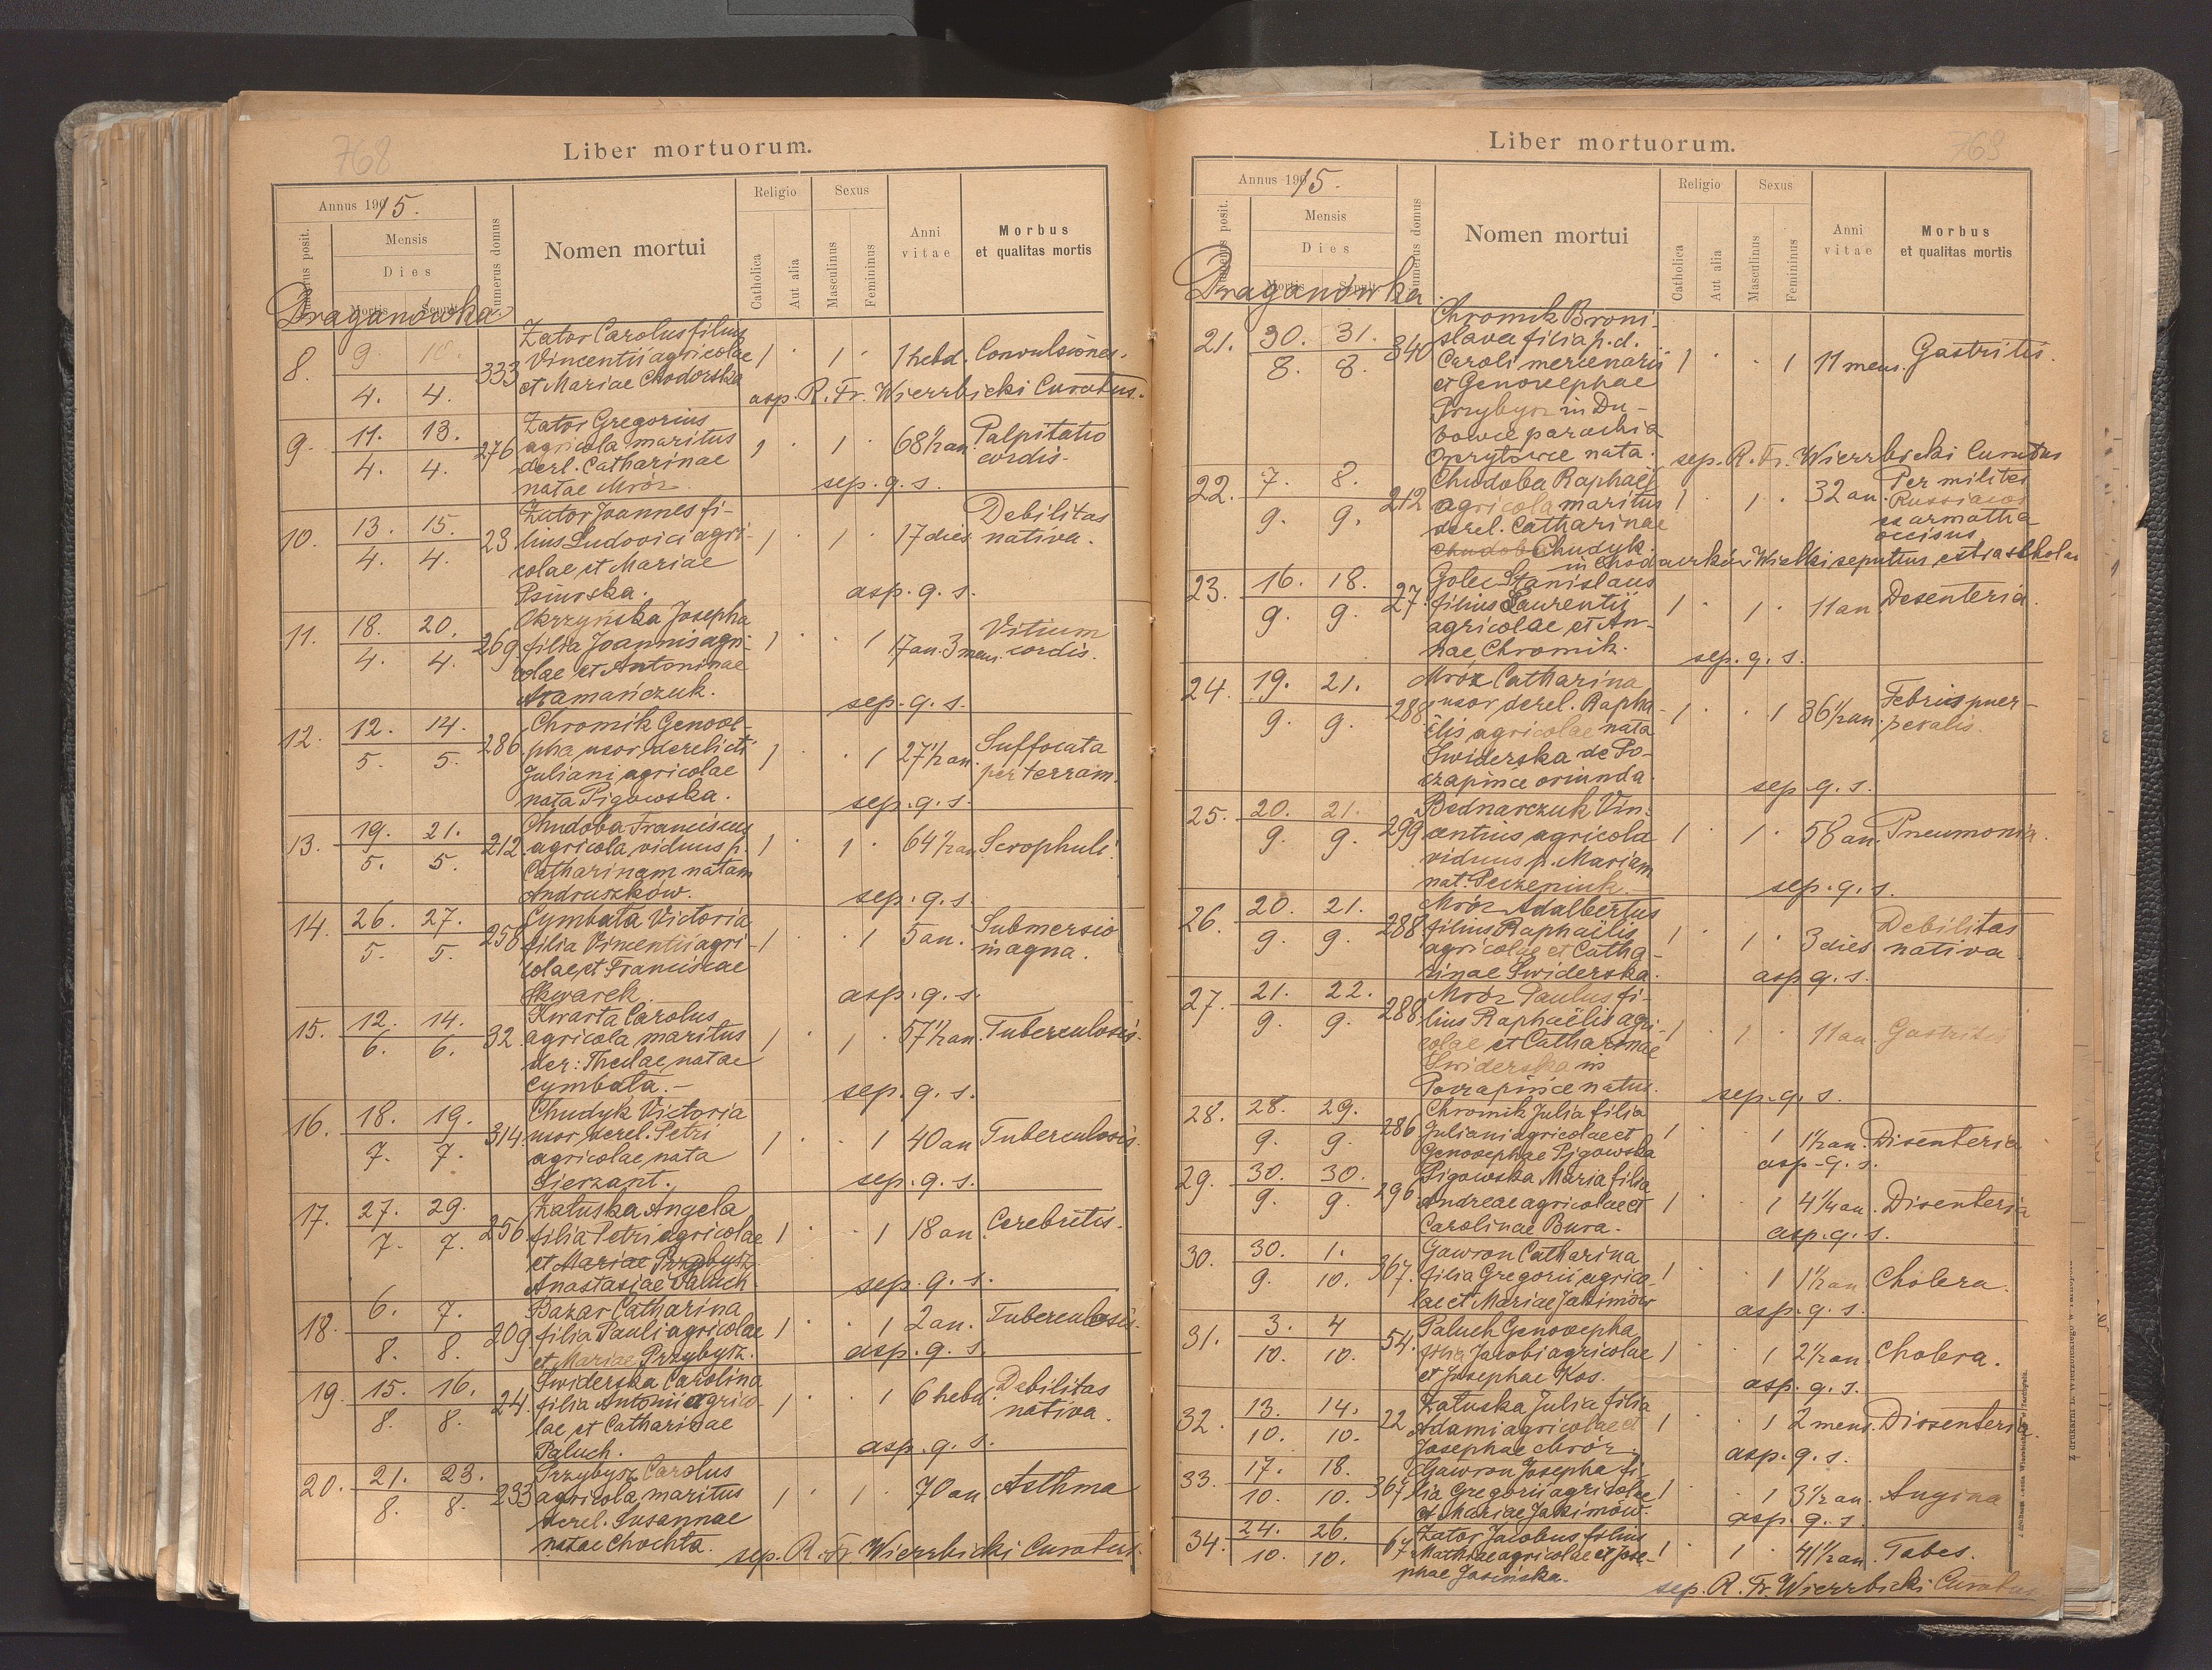 768
Liber mortuorum.
Annus 1915.
Numerus posit.
Mensis
Dies
Mortis
Sepult.
Numerus domus
Nomen mortui
Religio
Catholica
Aut alia
Sexus
Masculinus
Femininus
Anni vitae
Morbus
et qualitas mortis
Draganówka
8. 9. 10. 333 Zator Carolus filius
4. 4. Vincentii agricolae 1 1 1 hebd. Convulsiones.
et Mariae Chodorska
asp. R. Fr. Wierzbicki Curatus.
9. 11. 13. 276 Zator Gregorius
4. 4. agricola maritus 1 1 68 1/2 an. Palpitatio
derl. Catharinae cordis.
natae Mróz. sep. q. s.
10. 13. 15. 23 Zator Joannes fi-
4. 4. lius Ludovici agri- 1 1 17 dies Debilitas
colae et Mariae nativa.
Psiurska. asp. q. s.
11. 18. 20. 269 Okrzyńska Josepha
4. 4. filia Joannis agri- 1 1 17 an. 3 mens. Vitium
colae et Antoninae cordis.
Aramańczuk. sep. q. s.
12. 12. 14. 286 Chromik Genove-
5. 5. pha uxor derelicti 1 1 27 1/2 an. Suffocata
Juliani agricolae per terram.
nata Pigowska. sep. q. s.
13. 19. 21. 212. Chudoba Franciscus
5. 5. agricola viduus p. 1 1 64 1/2 an. Scrophuli.
Catharinam natam
Andruszków. sep. q. s.
14. 26. 27. 258 Cymbała Victoria
5. 5. filia Vincentii agri- 1 1 5 an. Submersio
colae et Franciscae in aqua.
Skwarek. asp. q. s.
15. 12. 14. 32. Kwarta Carolus
6. 6. agricola maritus 1 1 57 1/2 an. Tuberculosis.
der: Theclae natae
Cymbała.- sep. q. s.
16. 18. 19. 314. Chudyk Victoria
7. 7. uxor derel. Petri 1 1 40 an Tuberculosis.
agricolae nata
Sierzant. sep. q. s.
17. 27. 29. 256. Załuska Angela
7. 7. filia Petri agricolae 1 1 18 an. Cerebritis.
et Mariae Przybysz
Anastasiae Paluch. sep. q. s.
18. 6. 7. 209. Bazar Catharina
8. 8. filia Pauli agricolae 1 1 2 an. Tuberculosis.
et Mariae Przybysz. asp. q. s.
19. 15. 16. 24. Swiderska Carolina
8. 8. filia Antonii agrico- 1 1 6 hebd. Debilitas
lae et Catharinae nativa.
Paluch. asp. q. s.
20. 21. 23. 233 Przybysz Carolus
8. 8. agricola maritus 1 1 70 an. Asthma
derel. Susannae
natae Chochta. sep. R. Fr. Wierzbicki Curatus.
769
Liber mortuorum.
Annus 1915.
Numerus posit.
Mensis
Dies
Mortis
Sepult.
Numerus domus
Nomen mortui
Religio
Catholica
Aut alia
Sexus
Masculinus
Femininus
Anni vitae
Morbus
et qualitas mortis
Draganówka.
21. 30. 31. 340 Chromik Broni-
8. 8. slava filia p. d.
Caroli mercenarii 1 1 11 mens. Gastritis.
et Genovephae
Przybysz in Du-
bowce parochia
Oprytowce nata. sep. R. Fr. Wierzbicki Curatus
22. 7. 8. 212 Chudoba Raphaël
9. 9. agricola maritus 1 1 32 an. Per milites
derel. Catharinae Russiacos
Chudoba Chudyk. ex armatha
occisus
in Chodaczków Wielki sepultus extra schola
23. 16. 18. 27. Golec Stanislaus
9. 9. filius Laurentii 1 1 11 an Desenteria.
agricolae et An-
nae Chromik. sep. q. s.
24. 19. 21. 288 Mróz Catharina
9. 9. uxor derel. Rapha- 1 1 36 1/2 an. Febris puer-
ëlis agricolae nata peralis.
Swiderska de Po-
czapince oriunda. sep. q. s.
25. 20. 21. 299 Bednarczuk Vin-
9. 9. centius agricola 1 1 58 an. Pneumonia.
viduus p. Mariam
nat. Peczeniuk. sep. q. s.
26. 20. 21. 288 Mróz Adalbertus
9. 9. filius Raphaëlis 1 1 3 dies Debilitas
agricolae et Catha- nativa
rinae Swiderska. asp. q. s.
27. 21. 22. 288 Mróz Paulus fi-
9. 9. lius Raphaëlis agri- 1 1 11 an Gastritis
colae et Catharinae
Swiderska in
Poczapińce natus. sep. q. s.
28. 28. 29. 286 Chromik Julia filia
9. 9. Juliani agricolae et 1 1 1 1/2 an. Disenteria
Genovephae Pigowska asp. q. s.
29. 30. 30. 296 Pigowska Maria filia
9. 9. Andreae agricolae et 1 1 4 1/4 an. Disenteria
Carolinae Bura. asp. q. s.
30. 30. 1. 367. Gawron Catharina
9. 10. filia Gregorii agrico- 1 1 1 1/2 an Cholera.
lae et Mariae Jakimów asp. q. s.
31. 3. 4 54. Paluch Genovepha
10. 10. filia Jacobi agricolae 1 1 2 1/2 an. Cholera.
et Josephae Kos. asp. q. s.
32. 13. 14. 22 Załuska Julia filia
10. 10. Adami agricolae et 1 1 2 mens. Dissenteria.
Josephae Mróz. asp. q. s.
33. 17. 18. 367 Gawron Josepha fi-
10. 10. lia Gregorii agricolae 1 1 3 1/2 an. Angina
et Mariae Jakimów. asp. q. s.
34. 24. 26. 67 Zator Jacobus filius
10. 10. Mathiae agricolae et Jose- 1 1 41 1/2 an. Tabes.
phae Jasińska. sep. R. Fr. Wierzbicki Curatus